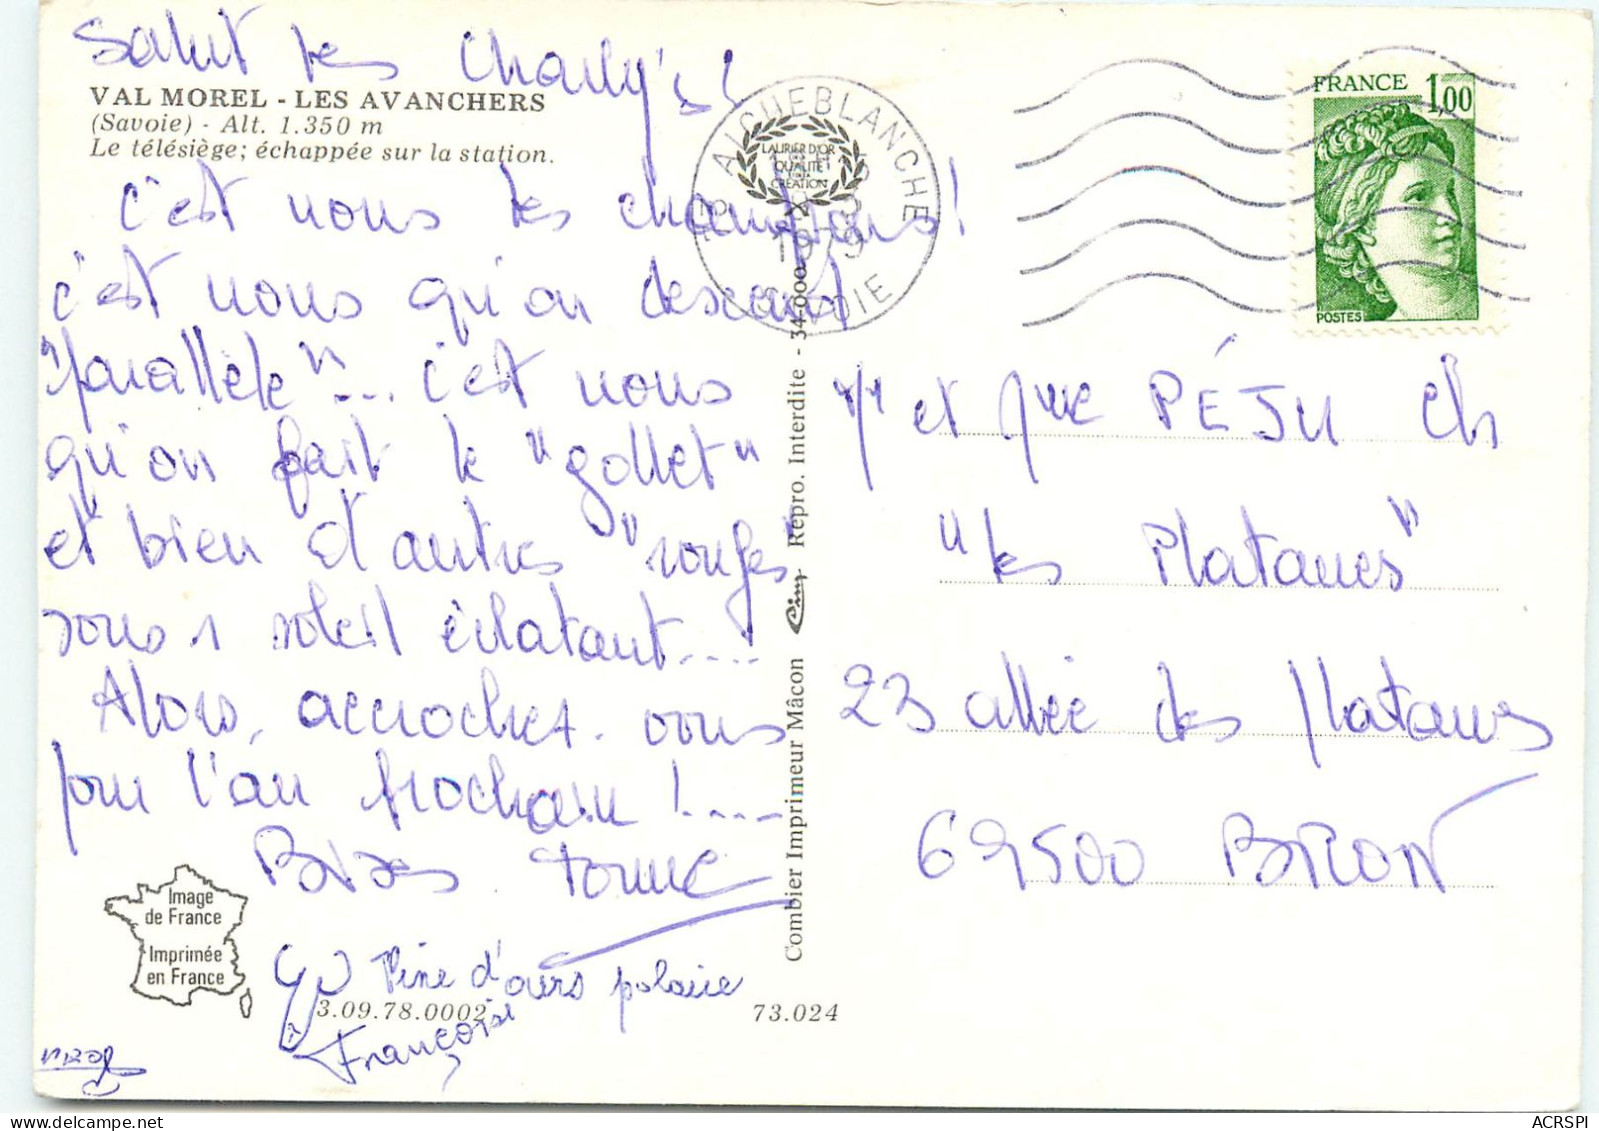 Salut les Charly's!
VAL MOREL - LES AVANCHERS
(Savoie) - Alt. 1.350 m
Le télésiège; échappée sur la station.
c'est nous les champions!
c'est nous qu'on descend
"parallèle"... c'est nous
qu'on fait le "gollet"
et bien d'autres "rouges"
sous 1 soleil éclatant....
Alors, accrochez-vous
pour l'an prochain!....
Bises
Image
de France
Imprimée
en France
d'ours polaire
Françoise
3.09.78.0002
73.024
Combier Imprimeur Mâcon Cim Repro. Interdite - 34.000
AIGUEBLANCHE
LAURIER D'OR
QUALITÉ
CRÉATION
1979
SAVOIE
FRANCE 1,00
POSTES
Mr et Mme PÉJU Ch
"Les Platanes"
23 allée des Platanes
69500 BRON
ACRSPI